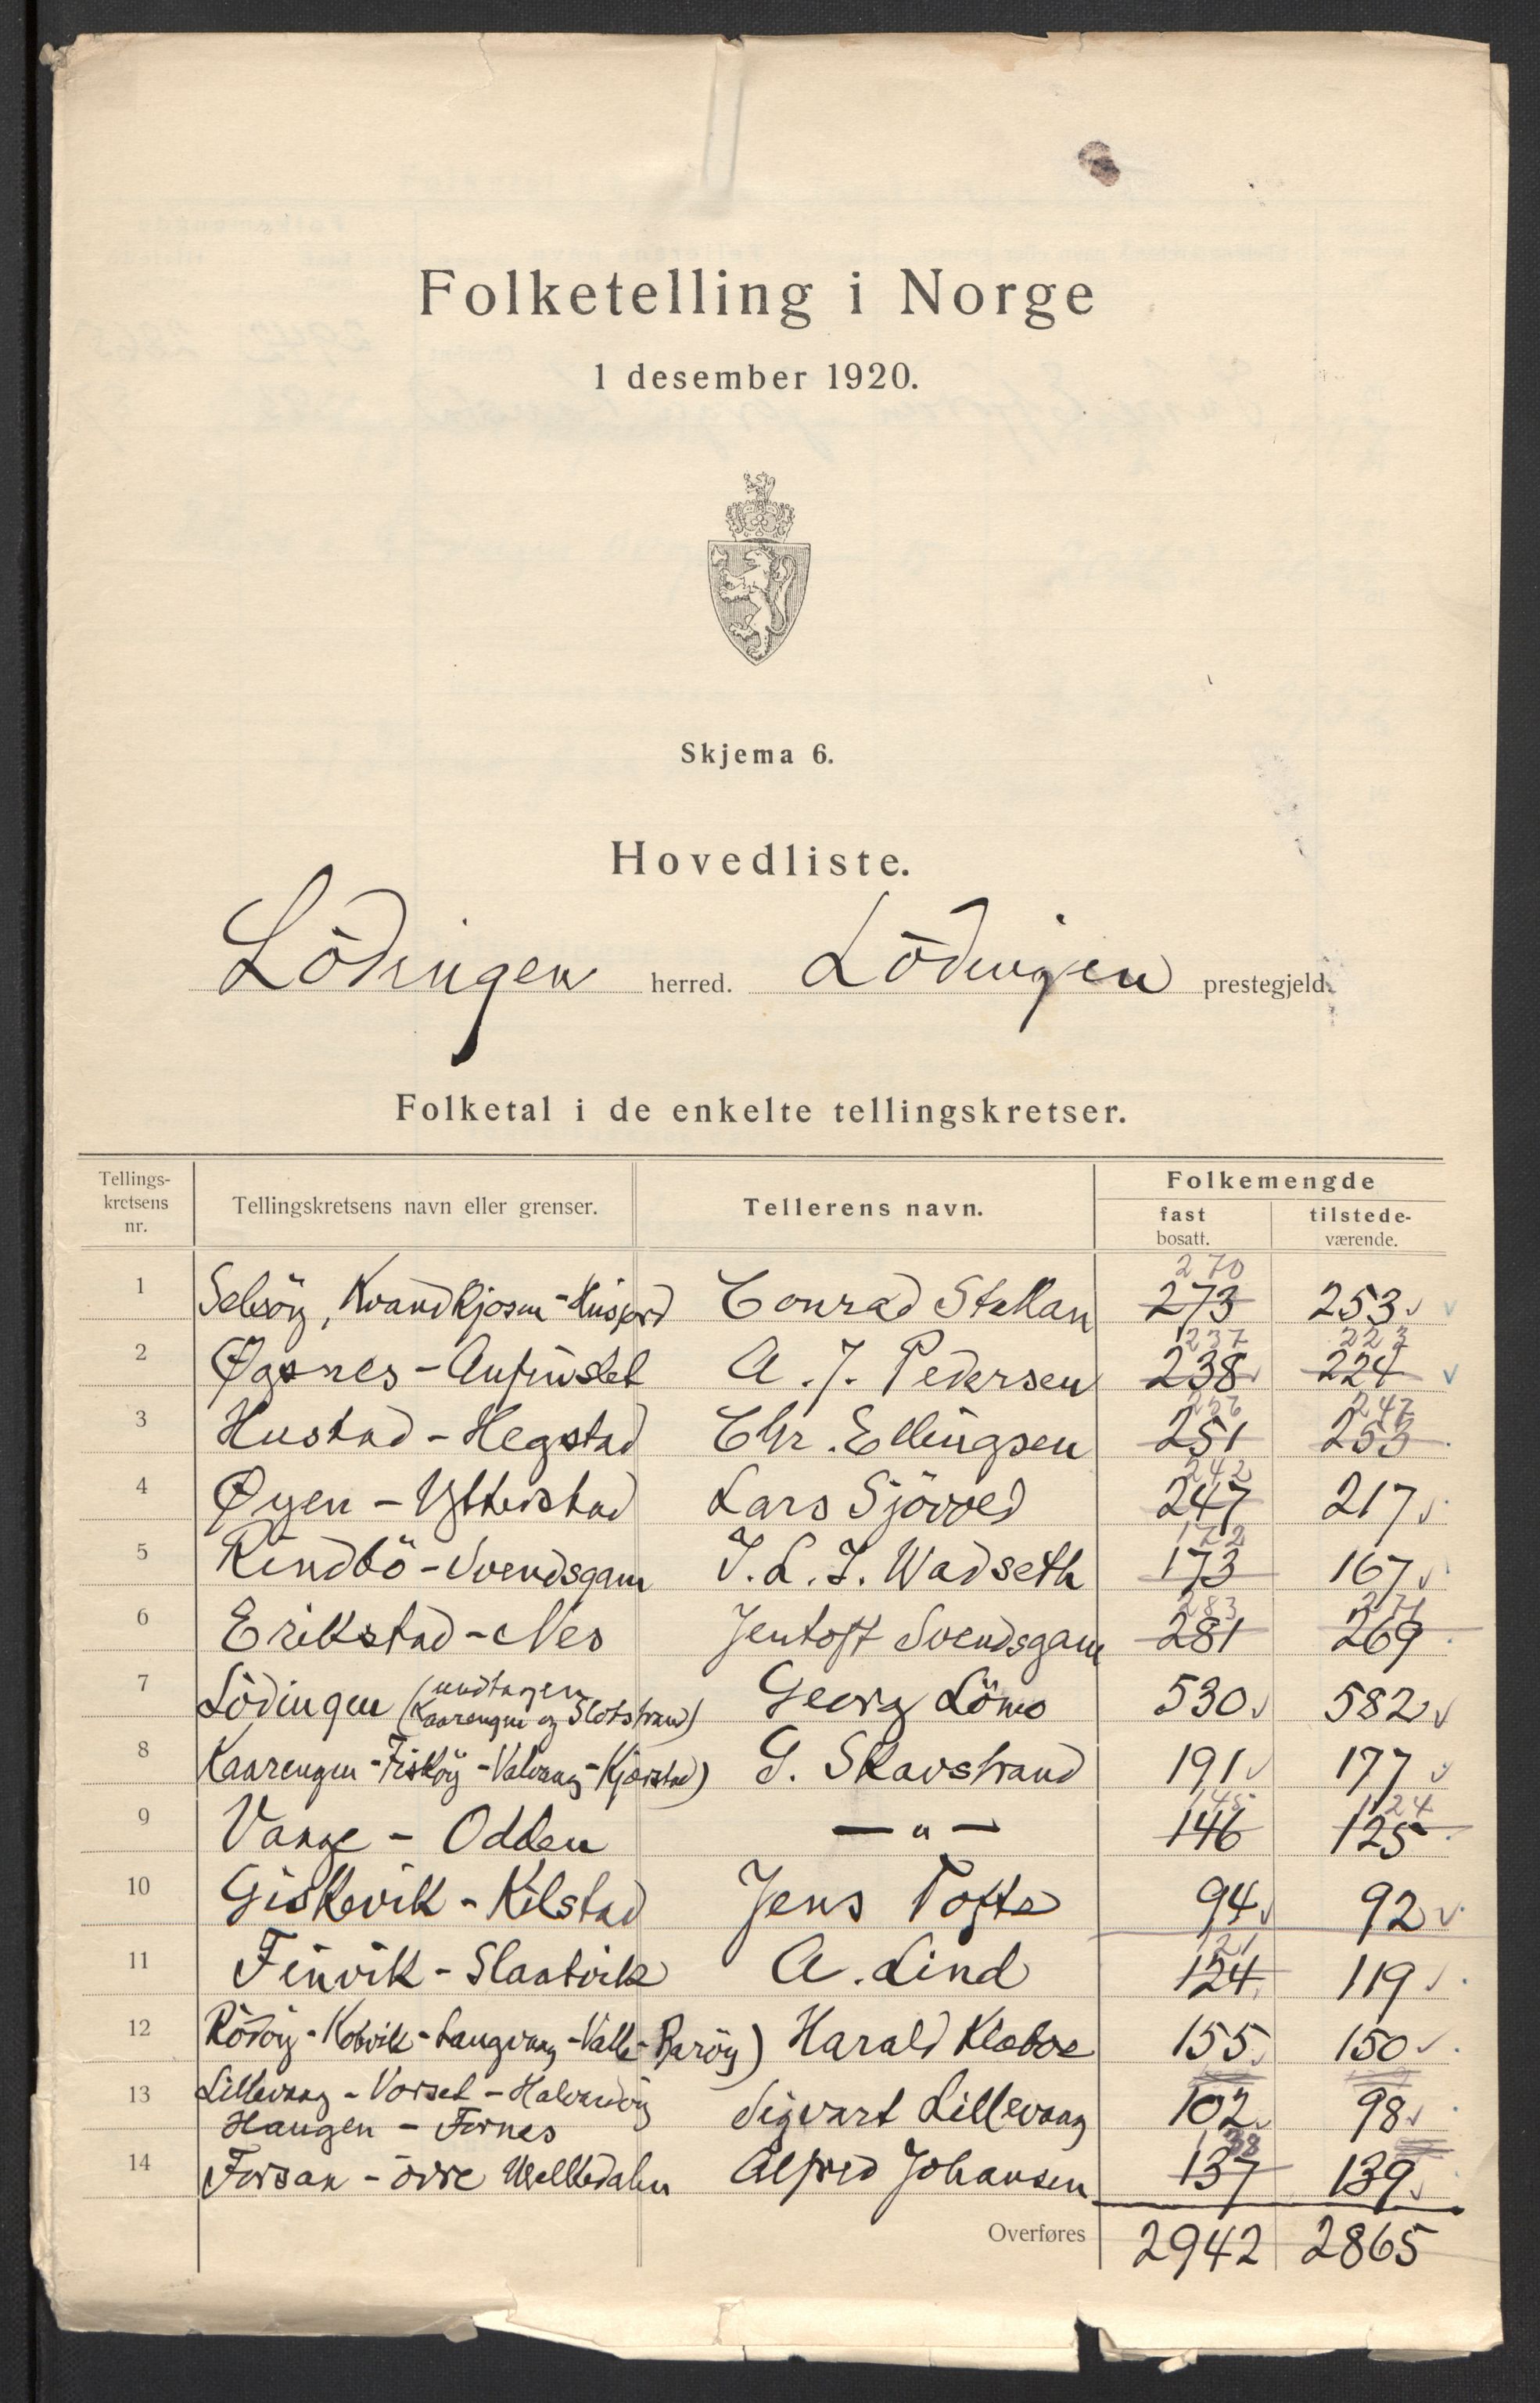 Folketelling i Norge
1 desember 1920.
Skjema 6.
Hovedliste.
Lödingen herred. Lödingen prestegjeld.
Folketal i de enkelte tellingskretser.
Tellings-kretsens nr. Tellingskretsens navn eller grenser. Tellerens navn. Folkemengde
fast bosatt. tilstede-værende.
270
1 Selsöy, Kvandkjosen - Husjord Conrad Stellan 273 253
237 223
2 Øgsnes - Anfinslet A. J. Pedersen 238 224
256 247
3 Hustad - Hegstad Chr. Ellingsen 251 253
242
4 Øyen - Ytterstad Lars Sjövold 247 217
172
5 Rindbö - Svendsgam J. L. J. Wadseth 173 167
283 271
6 Erikstad - Nes Jentoft Svendsgam 281 269
7 Lödingen (undtagen Kaarengen og Slotstrand) Georg Lömo 530 582
8 Kaarengen - Fisköy - Valvaag - Kjörstad) G. Skavstrand 191 177
145 124
9 Vange - Odden — " — 146 125
10 Giskevik - Kilstad Jens Tofte 94 92
121
11 Finvik - Slaatvik A. Lind 124 119
12 Rödöy - Kobvik - Langvaag - Valle - Baröy) Harald Klæboe 155 150
13 Lillevaag - Vorset - Halvardöy
Haugen - Fornes Sigvart Lillevaag 102 98
38
14 Forsaa - övre Melkedalen Alfred Johansen 137 139
Overføres 2942 2865